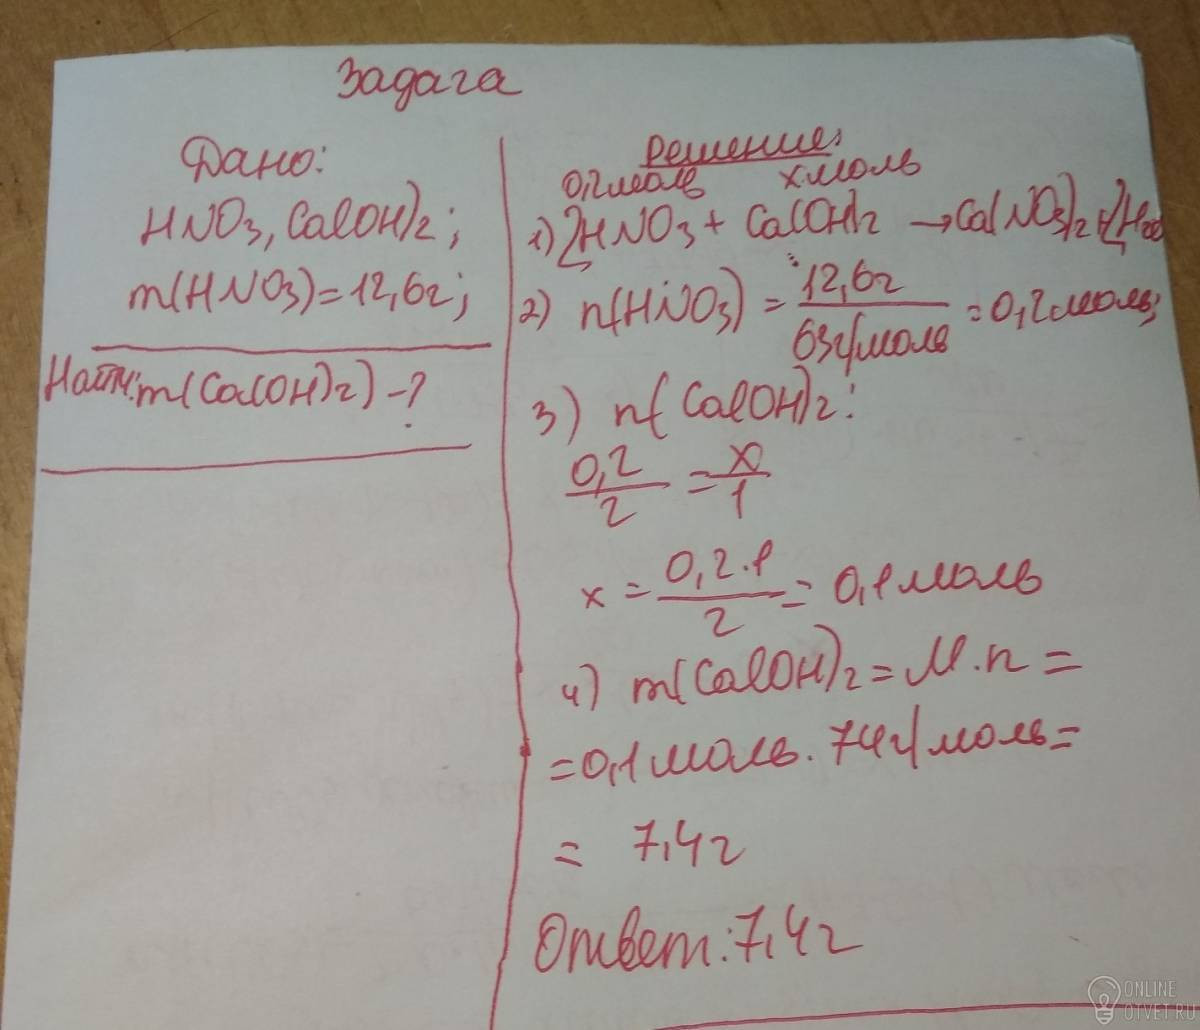 Задача
Дано:
HNO3, Ca(OH)2;
m(HNO3)=12,6г;
Найти: m(Ca(OH)2) -?
Решение:
0,2моль xмоль
1) 2HNO3 + Ca(OH)2 → Ca(NO3)2 + 2H2O
2) n(HNO3) = 12,6г / 63г/моль = 0,2моль;
3) n(Ca(OH)2:
0,2 / 2 = x / 1
x = 0,2·1 / 2 = 0,1моль
4) m(Ca(OH)2 = M·n =
=0,1моль·74г/моль=
= 7,4г
Ответ: 7,4г
ONLINE
OTVET.RU